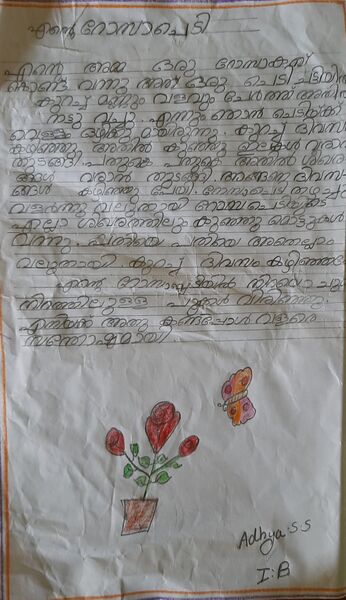 എന്റെ റോസാചെടി
എന്റെ അമ്മ ഒരു റോസാകമ്പ്
കൊണ്ട് വന്നു അത് ഒരു ചെടി ചട്ടിയിൽ
കുറച്ച് മണ്ണും വളവും ചേർത്ത് അതിൽ
നട്ടു വച്ചു. എന്നും ഞാൻ ചെടിയ്ക്ക്
വെള്ളം ഒഴിക്കു മായിരുന്നു. കുറച്ച് ദിവസം
കഴിഞ്ഞു അതിൽ കുഞ്ഞു ഇലകൾ വരാൻ
തുടങ്ങി. പതുകെ പതുകെ അതിൽ ശിഖര
ങ്ങൾ വരാൻ തുടങ്ങി. അങ്ങനെ ദിവസ
ങ്ങൾ കഴിഞ്ഞു പോയി. റോസാചെടി
വളർന്നു വലുതായി റോസാചെടിയുടെ
എല്ലാ ശിഖരത്തിലും കുഞ്ഞു മൊട്ടുകൾ
വന്നു. പതിയെ പതിയെ അതെല്ലാം
വലുതായി. കുറച്ച് ദിവസം കഴിഞ്ഞപ്പോൾ
എന്റെ റോസാചെടിയിൽ നിറയെ ചുവ
നിറത്തിലുള്ള പൂക്കൾ വിരിഞ്ഞു.
എനിയ്ക്ക് അതു കണ്ടപ്പോൾ വളരെ
സന്തോഷമായി
Adhya.S.S
I:B